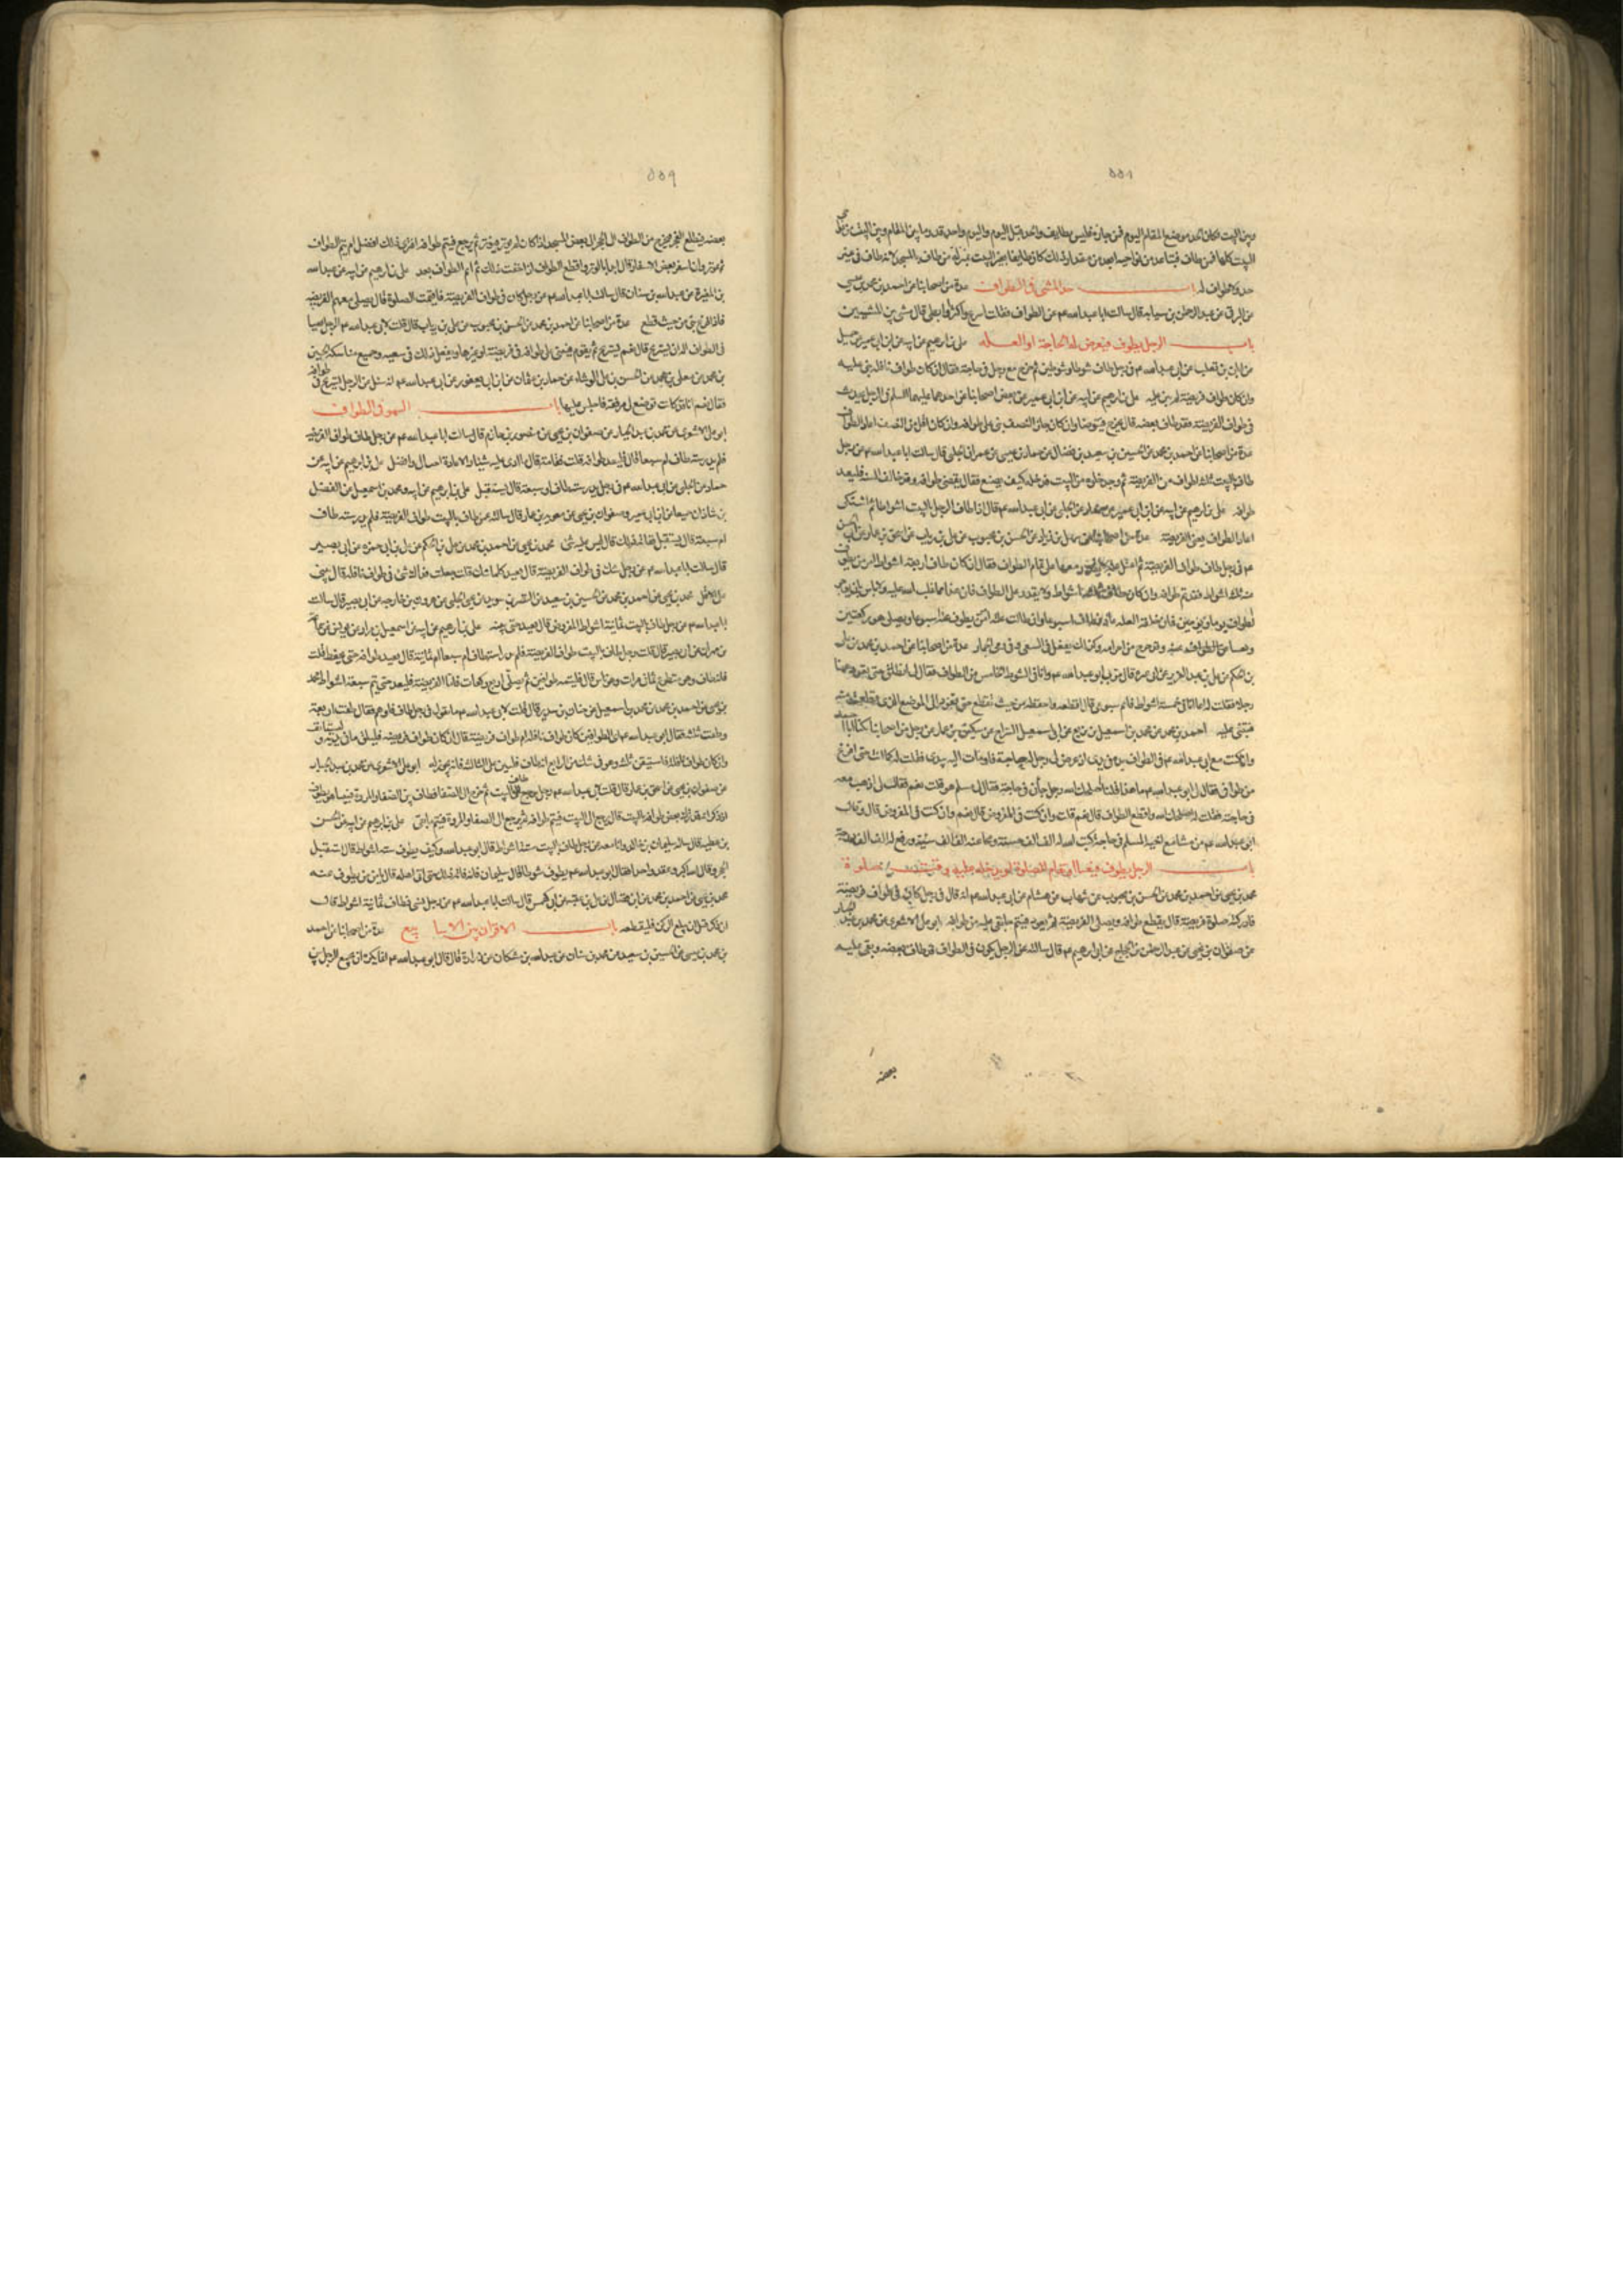 ٥٥٨
وبين البيت فكان الحد موضع المقام اليوم فمن جازه فليس بطايف والحد قبل اليوم واليوم واحد قدر ما بين المقام وبين البيت من نواحي
البيت كلها فمن طاف فتباعد من نواحيه ابعد من مقدار ذلك كان طايفا بغير البيت بمنزلة من طاف بالمسجد لانه طاف في غير
حد ولا طواف له باب حد المشي في الطواف عدة من اصحابنا عن احمد بن محمد بن عيسى
عن البرقي عن عبد الرحمن بن سيابة قال سالت ابا عبد الله عم عن الطواف فقلت اسرع واكثر او ابطئ قال مشي بين المشيين
باب الرجل يطوف فتعرض له الحاجة او العلة علي بن ابرهيم عن ابيه عن ابن ابي عمير عن جميل
عن ابان بن تغلب عن ابي عبد الله عم في رجل طاف شوطا او شوطين ثم خرج مع رجل في حاجة فقال ان كان طواف نافلة بنى عليه
وان كان طواف فريضة لم يبن عليه علي بن ابرهيم عن ابيه عن ابن ابي عمير عن بعض اصحابنا عن احدهما عليهما السلم في الرجل يحدث
في طواف الفريضة وقد طاف بعضه قال يخرج فيتوضا فان كان جاز النصف بنى على طوافه وان كان اقل من النصف اعاد الطواف
عدة من اصحابنا عن احمد بن محمد عن الحسين بن سعيد بن فضال عن حماد بن عيسى عن عمران الحلبي قال سالت ابا عبد الله عم عن رجل
طاف بالبيت ثلثة اطواف من الفريضة ثم وجد خلوة من البيت فدخله كيف يصنع فقال يقضي طوافه وقد خالف السنة فليعد
طوافه علي بن ابرهيم عن ابيه عن ابن ابي عمير عن حماد عن الحلبي عن ابي عبد الله عم قال اذا طاف الرجل بالبيت اشواطا ثم اشتكى
اعاد الطواف يعني الفريضة عدة من اصحابنا عن سهل بن زياد عن الحسن بن محبوب عن علي بن رياب عن اسحق بن عمار عن ابي الحسن
عم في رجل طاف طواف الفريضة ثم اعتل علة لا يقدر معها على تمام الطواف فقال ان كان طاف اربعة اشواط امر من يطوف
عنه ثلثة اشواط فقد تم طوافه وان كان طاف ثلثة اشواط ولا يقدر على الطواف فان هذا مما غلب الله عليه ولا باس بان يوخر
الطواف يوما او يومين فان خلته العلة عاد فطاف اسبوعا وان طالت علته امر من يطوف عنه اسبوعا ويصلي هو ركعتين
ويسعى عنه وقد خرج من احرامه وكذلك يفعل في السعي وفي رمي الجمار عدة من اصحابنا عن احمد بن محمد عن علي
بن الحكم عن علي بن عبد العزيز عن ابي عزة قال مر بي ابو عبد الله عم وانا في الشوط الخامس من الطواف فقال لي انطلق حتى نعود ههنا
رجلا فقلت له انما انا في خمسة اشواط فاتم اسبوعي قال اقطعه واحفظه من حيث تقطع حتى تعود الى الموضع الذي قطعت منه
فتبني عليه احمد بن محمد عن محمد بن اسمعيل بن بزيع عن ابي اسمعيل السراج عن سكين بن عمار عن رجل من اصحابنا يكنى ابا احمد
قال كنت مع ابي عبد الله عم في الطواف يده في يدي اذ عرض لي رجل له حاجة فاومات اليه بيدي فقلت له كما انت حتى افرغ
من طوافي فقال لي ابو عبد الله عم ما هذا قلت اصلحك الله رجل جاءني في حاجة فقال لي مسلم هو قلت نعم فقال لي اذهب معه
في حاجته فقلت له اصلحك الله واقطع الطواف قال نعم قلت وان كنت في المفروض قال نعم وان كنت في المفروض قال وقال
ابو عبد الله عم من مشى مع اخيه المسلم في حاجة كتب الله له الف الف حسنة ومحا عنه الف الف سيئة ورفع له الف الف درجة
باب الرجل يطوف فيعيا او تقام الصلوة او يدخل عليه وقت الصلوة
محمد بن يحيى عن احمد بن محمد عن الحسن بن محبوب عن شهاب عن هشام عن ابي عبد الله عم انه قال في رجل كان في طواف فريضة
فادركته صلوة فريضة قال يقطع طوافه ويصلي الفريضة ثم يعود فيتم ما بقي عليه من طوافه ابو علي الاشعري عن محمد بن عبد الجبار
عن صفوان بن يحيى عن عبد الرحمن بن الحجاج عن ابي ابرهيم عم قال سالته عن الرجل يكون في الطواف قد طاف بعضه وبقي عليه
بعضه
٥٥٩
بعضه فيطلع الفجر فيخرج من الطواف الى الحجر او الى بعض المسجد اذا كان لم يوتر فيوتر ثم يرجع فيتم طوافه افترى ذلك افضل ام يتم الطواف
ثم يوتر وان اسفر بعض الاسفار قال ابدا بالوتر واقطع الطواف اذا خفت ذلك ثم اتم الطواف بعد علي بن ابرهيم عن ابيه عن عبد الله
بن المغيرة عن عبد الله بن سنان قال سالت ابا عبد الله عم عن رجل كان في طواف الفريضة فاقيمت الصلوة قال يصلي معهم الفريضة
فاذا فرغ بنى من حيث قطع عدة من اصحابنا عن احمد بن محمد عن الحسن بن محبوب عن علي بن رياب قال قلت لابي عبد الله عم الرجل يعيا
في الطواف اله ان يستريح قال نعم يستريح ثم يقوم فيبني على طوافه في فريضة او غيرها ويفعل ذلك في سعيه وجميع مناسكه الحسين
بن محمد عن معلى بن محمد عن الحسن بن علي الوشاء عن حماد بن عثمان عن ابن ابي يعفور عن ابي عبد الله عم انه سئل عن الرجل يستريح في طوافه
فقال نعم انا قد كانت توضع لي مرفقة فاجلس عليها باب السهو في الطواف
ابو علي الاشعري عن محمد بن عبد الجبار عن صفوان بن يحيى عن منصور بن حازم قال سالت ابا عبد الله عم عن رجل طاف طواف الفريضة
فلم يدر ستة طاف ام سبعة قال فليعد طوافه قلت ففاته قال ما ارى عليه شيئا والاعادة احب الي وافضل علي بن ابرهيم عن ابيه عن
حماد عن الحلبي عن ابي عبد الله عم في رجل لم يدر ستة طاف او سبعة قال يستقبل علي بن ابرهيم عن ابيه ومحمد بن اسمعيل عن الفضل
بن شاذان جميعا عن ابن ابي عمير وصفوان بن يحيى عن معوية بن عمار قال سالته عن طاف بالبيت طواف الفريضة فلم يدر ستة طاف
ام سبعة قال يستقبل قلت ففاته ذلك قال ليس عليه شيء محمد بن يحيى عن احمد بن محمد عن علي بن الحكم عن علي بن ابي حمزة عن ابي بصير
قال سالت ابا عبد الله عم عن رجل شك في طواف الفريضة قال يعيد كلما شك قلت جعلت فداك شك في طواف نافلة قال يبني
على الاقل محمد بن يحيى عن احمد بن محمد عن الحسين بن سعيد عن النضر بن سويد عن يحيى الحلبي عن هرون بن خارجة عن ابي بصير قال سالت
ابا عبد الله عم عن رجل طاف بالبيت ثمانية اشواط المفروض قال يعيد حتى يثبته علي بن ابرهيم عن ابيه عن اسمعيل بن مرار عن يونس عن سماعة
بن مهران عن ابي بصير قال قلت رجل طاف بالبيت طواف الفريضة فلم يدر ستة طاف ام سبعا ام ثمانية قال يعيد طوافه حتى يحفظ قلت
فانه طاف وهو متطوع ثماني مرات وهو ناس قال فليتمه طوافين ثم يصلي اربع ركعات فاما الفريضة فليعد حتى يتم سبعة اشواط محمد
بن يحيى عن احمد بن محمد عن محمد بن اسمعيل عن حنان بن سدير قال قلت لابي عبد الله عم ما تقول في رجل طاف فاوهم فقال طفت اربعة
وطفت ثلثة فقال ابو عبد الله عم اي الطوافين كان طواف نافلة ام طواف فريضة قال ان كان طواف فريضة فليلق ما في يديه وليستانف
وان كان طواف نافلة فاستيقن ثلثة وهو في شك من الرابع انه طاف فليبن على الثالثة فانه يجوز له ابو علي الاشعري عن محمد بن عبد الجبار
عن صفوان بن يحيى عن اسحق بن عمار قال قلت لابي عبد الله عم رجل طاف بالبيت ثم خرج الى الصفا فطاف بين الصفا والمروة فبينا هو يطوف
اذ ذكر انه قد ترك بعض طوافه بالبيت قال يرجع الى البيت فيتم طوافه ثم يرجع الى الصفا والمروة فيتم ما بقي علي بن ابرهيم عن ابيه عن الحسن
بن عطية قال ساله سليمان بن خالد وانا معه عن رجل طاف بالبيت ستة اشواط قال ابو عبد الله وكيف يطوف ستة اشواط قال استقبل
الحجر وقال الله اكبر وعقد واحدا فقال ابو عبد الله عم يطوف شوطا قال سليمان فانه فاته ذلك حتى اتى اهله قال يامر من يطوف عنه
محمد بن يحيى عن احمد بن محمد عن ابن فضال عن علي بن عقبة عن ابي كهمس قال سالت ابا عبد الله عم عن رجل نسي فطاف ثمانية اشواط قال
ان ذكر قبل ان يبلغ الركن فليقطعه باب الاقران بين الاسابيع عدة من اصحابنا عن احمد
بن محمد بن عيسى عن الحسين بن سعيد عن محمد بن سنان عن عبد الله بن مسكان عن زرارة قال قال ابو عبد الله عم انما يكره ان يجمع الرجل بين